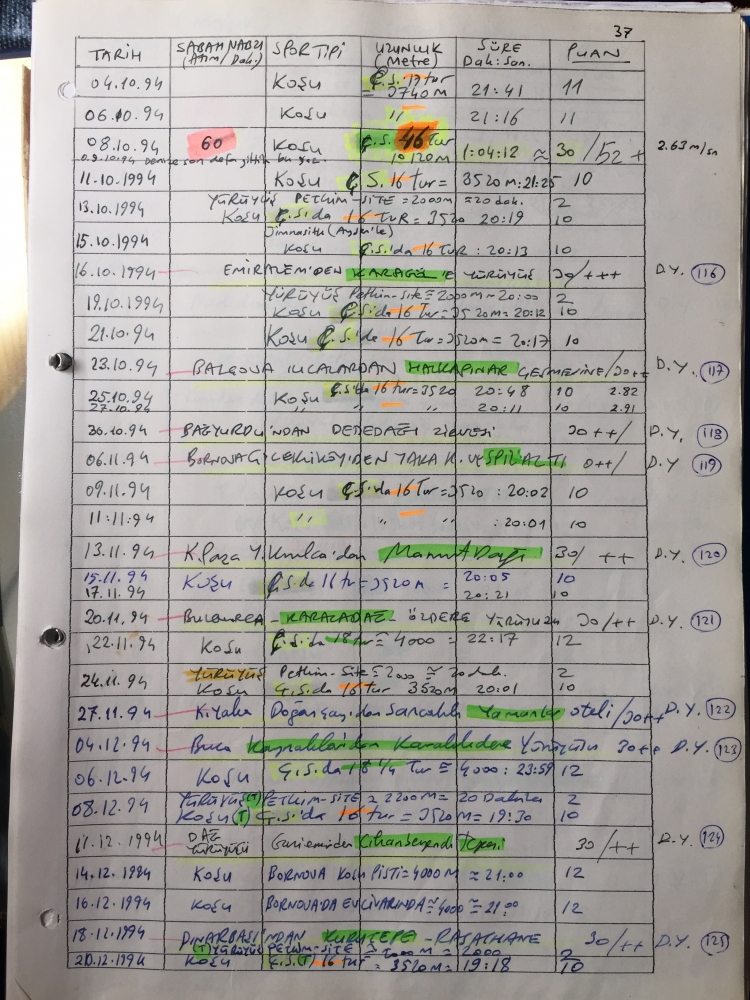 37
TARİH SABAH NABZI (Atım/Dak.) SPOR TİPİ UZUNLUK (Metre) SÜRE Dak:Son. PUAN
04.10.94 KOŞU Ç.S. 17 tur = 3740 M 21:41 11
06.10.94 KOŞU " 21:16 11
08.10.94 60 KOŞU Ç.S. 46 Tur 10120M 1:04:12 ≈ 30/52+ 2.63 m/sn
09.10.94 Denize son defa gittik bu yaz.
11.10.1994 KOŞU Ç.S. 16 tur = 3520M: 21:25 10
13.10.1994 YÜRÜYÜŞ PETKİM-SİTE = 2000M = 20 dak. 2
KOŞU Ç.S.'da 16 TUR = 3520 20:19 10
Jimnastik
15.10.1994 KOŞU Ç.S.'da 16 TUR : 20:13 10
16.10.1994 EMİRALEM'DEN KARAGÖL'E YÜRÜYÜŞ 30/+++ D.Y. 116
19.10.1994 YÜRÜYÜŞ Petkim-Site = 2000M = 20:00 2
KOŞU Ç.S.'da 16 Tur = 3520M = 20:12 10
21.10.94 KOŞU Ç.S.'da 16 Tur = 3520M = 20:17 10
23.10.94 BALÇOVA ILICALARDAN HALKAPINAR ÇEŞMESİNE/30++ D.Y. 117
25.10.94 KOŞU Ç.S'da 16 tur = 3520 20:48 10 2.82
27.10.94 " " " 20:11 10 2.91
30.10.94 BAĞYURDU'NDAN DEDEDAĞI ZİRVESİ 30++/ D.Y. 118
06.11.94 BORNOVA ÇİÇEKLİKÖY'DEN YAKA K. VE SPİL ALTI D.Y 119
09.11.94 KOŞU Ç.S'da 16 Tur = 3520 : 20:02 10
11:11:94 " " " " : 20:01 10
13.11.94 Manut Dağı 30/ ++ D.Y. 120
15.11.94 KOŞU Ç.S.da 16 tur = 3520M = 20:05 10
17.11.94 20:21 10
20.11.94 KARACADAĞ - ÖZDERE YÜRÜYÜŞÜ 30/++ D.Y. 121
22.11.94 KOŞU Ç.S.'da 18 tur = 4000 = 22:17 12
24.11.94 YÜRÜYÜŞ Petkim-Site = 2000 ≈ 20 dak. 2
KOŞU Ç.S.da 16 tur 3520M 20:01 10
27.11.94 K.Yaka Doğançay'dan Sancaklı Yamanlar oteli /30++ D.Y. 122
04.12.94 Buca Kaynaklar'dan Yürüyüşü 30++ D.Y. 123
06.12.94 KOŞU Ç.S.da 18 1/4 Tur = 4000 : 23:59 12
08.12.94 YÜRÜYÜŞ(T) PETKİM-SİTE = 2200M = 20 Dakika 2
KOŞU(T) Ç.S.'da 16 tur = 3520M = 19:30 10
11.12.1994 DAĞ YÜRÜYÜŞÜ Gaziemirden Cihanbeyendi Tepesi 30/++ D.Y. 124
14.12.1994 KOŞU BORNOVA KOŞU PİSTİ = 4000M ≈ 21:00 12
16.12.1994 KOŞU BORNOVADA EV CİVARINDA ≈ 4000 ≈ 21:00 12
18.12.1994 PINARBAŞI'NDAN KURUTEPE - RASATHANE 30/++ D.Y. 125
(T) YÜRÜYÜŞ PETKİM-SİTE = 2000M = 2000 2
20.12.1994 KOŞU Ç.S.(T) 16 tur = 3520M = 19:18 10